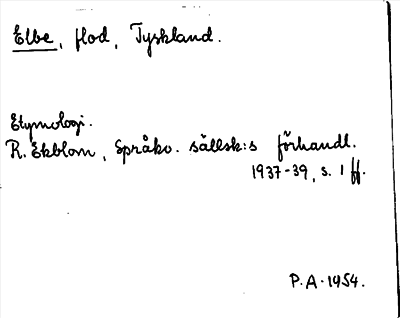 Elbe, flod, Tyskland.
Etymologi.
R. Ekblom, Språkv. sällsk:s förhandl.
1937-39, s. 1 ff.
P.A. 1954.